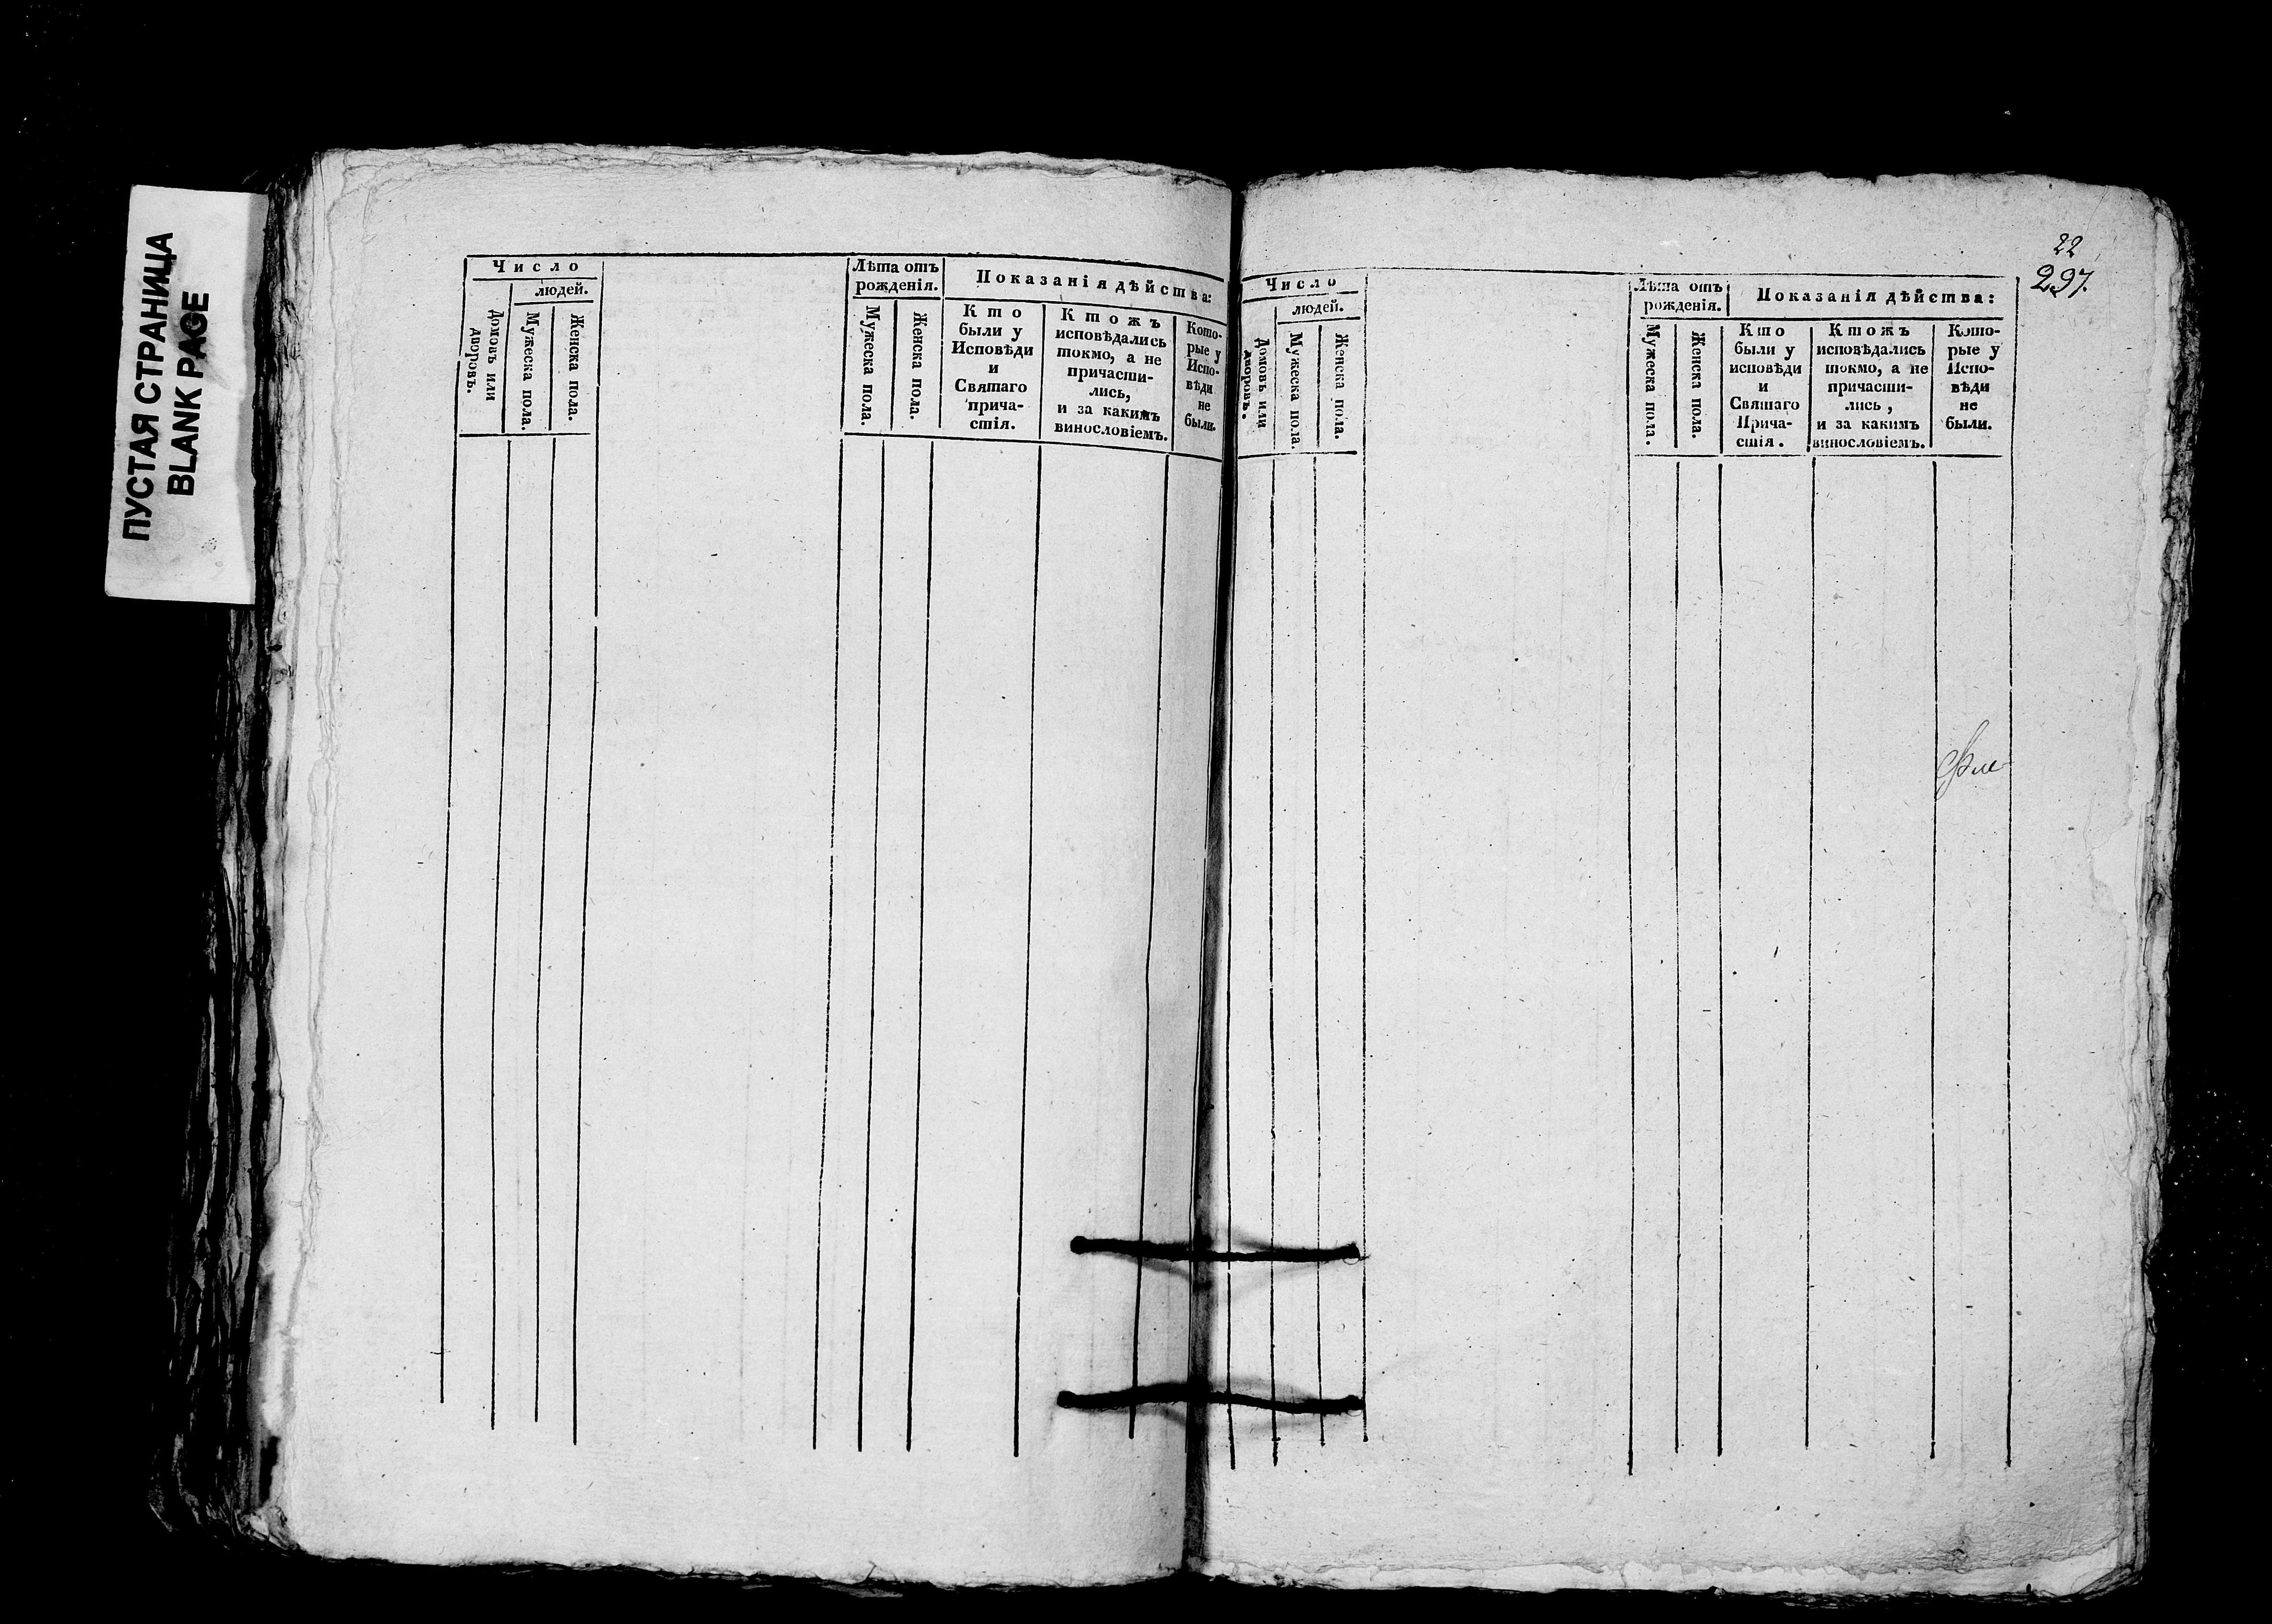 ПУСТАЯ СТРАНИЦА
BLANK PAGE
Число
людей.
Домовъ или
дворовъ.
Мужеска пола.
Женска пола.
Лѣта отъ
рожденія.
Мужеска пола.
Женска пола.
Показанія дѣйства:
Кто
были у
Исповѣди
и
Святаго
прича-
стія.
Ктожъ
исповѣдались
токмо, а не
причасти-
лись,
и за какимъ
винословіемъ.
Кото-
рые у
Испо-
вѣди
не
были.
22
297.
Число
людей.
Домовъ или
дворовъ.
Мужеска пола.
Женска пола.
Лѣта отъ
рожденія.
Мужеска пола.
Женска пола.
Показанія дѣйства:
Кто
были у
исповѣди
и
Святаго
Прича-
стія.
Ктожъ
исповѣдались
токмо, а не
причасти-
лись,
и за какимъ
винословіемъ.
Кото-
рые у
Испо-
вѣди
не
были.